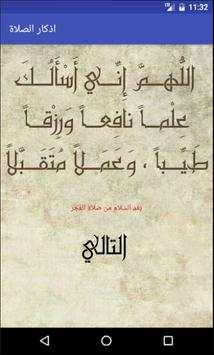 11:32
اذكار الصلاة
اللَّهُمَّ إِنِّي أَسْأَلُكَ
عِلْماً نافِعاً وَرِزْقاً
طَيِّباً ، وَعَمَلاً مُتَقَبَّلاً
بعد السلام من صلاة الفجر
التالي